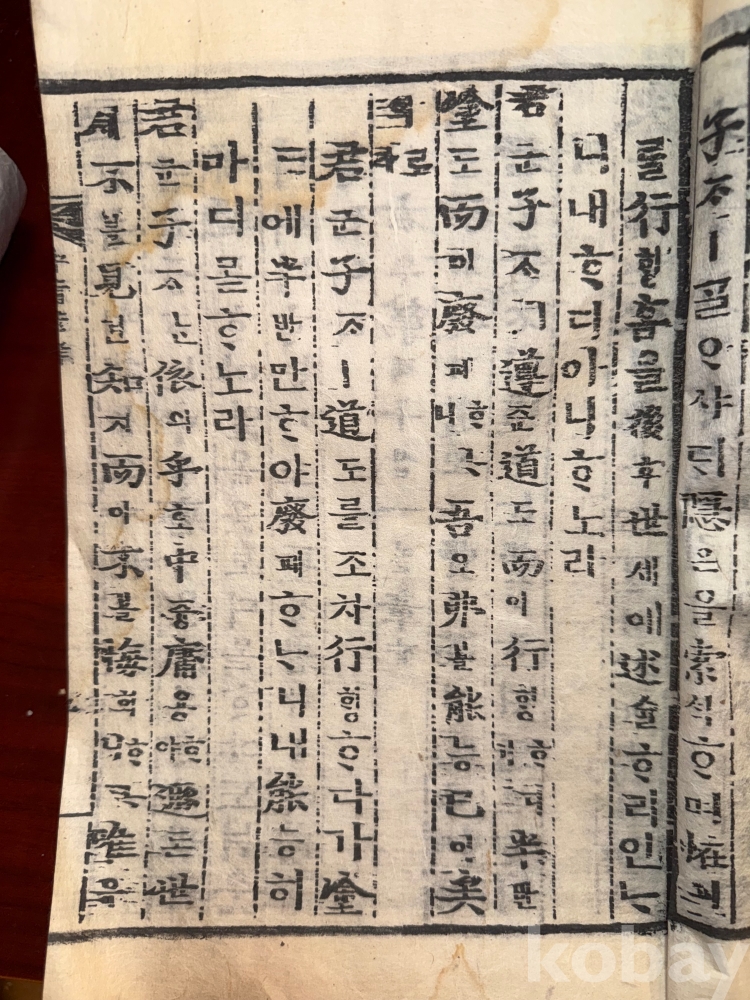 子ᄌᆞㅣᄀᆞᆯᄋᆞ샤ᄃᆡ隱은을索ᄉᆡᆨᄒᆞ며恠괴
를行ᄒᆡᆼ홈을後후世세에述술ᄒᆞ리인ᄂᆞ
니내ᄒᆞ디아니ᄒᆞ노라
君군子ᄌᆞㅣ遵준道도而이行ᄒᆡᆼ半반
塗도而이廢폐吾오弗블能능已이矣
의로라
君군子ᄌᆞㅣ道도를조차行ᄒᆡᆼᄒᆞ다가塗
도에半반만ᄒᆞ야廢폐ᄒᆞᄂᆞ니내能능히
마디몯ᄒᆞ노라
君군子ᄌᆞᄂᆞᆫ依의乎호中즁庸용ᄒᆞ야遯돈世
셰不블見견知지而이不블悔회唯유
kobay